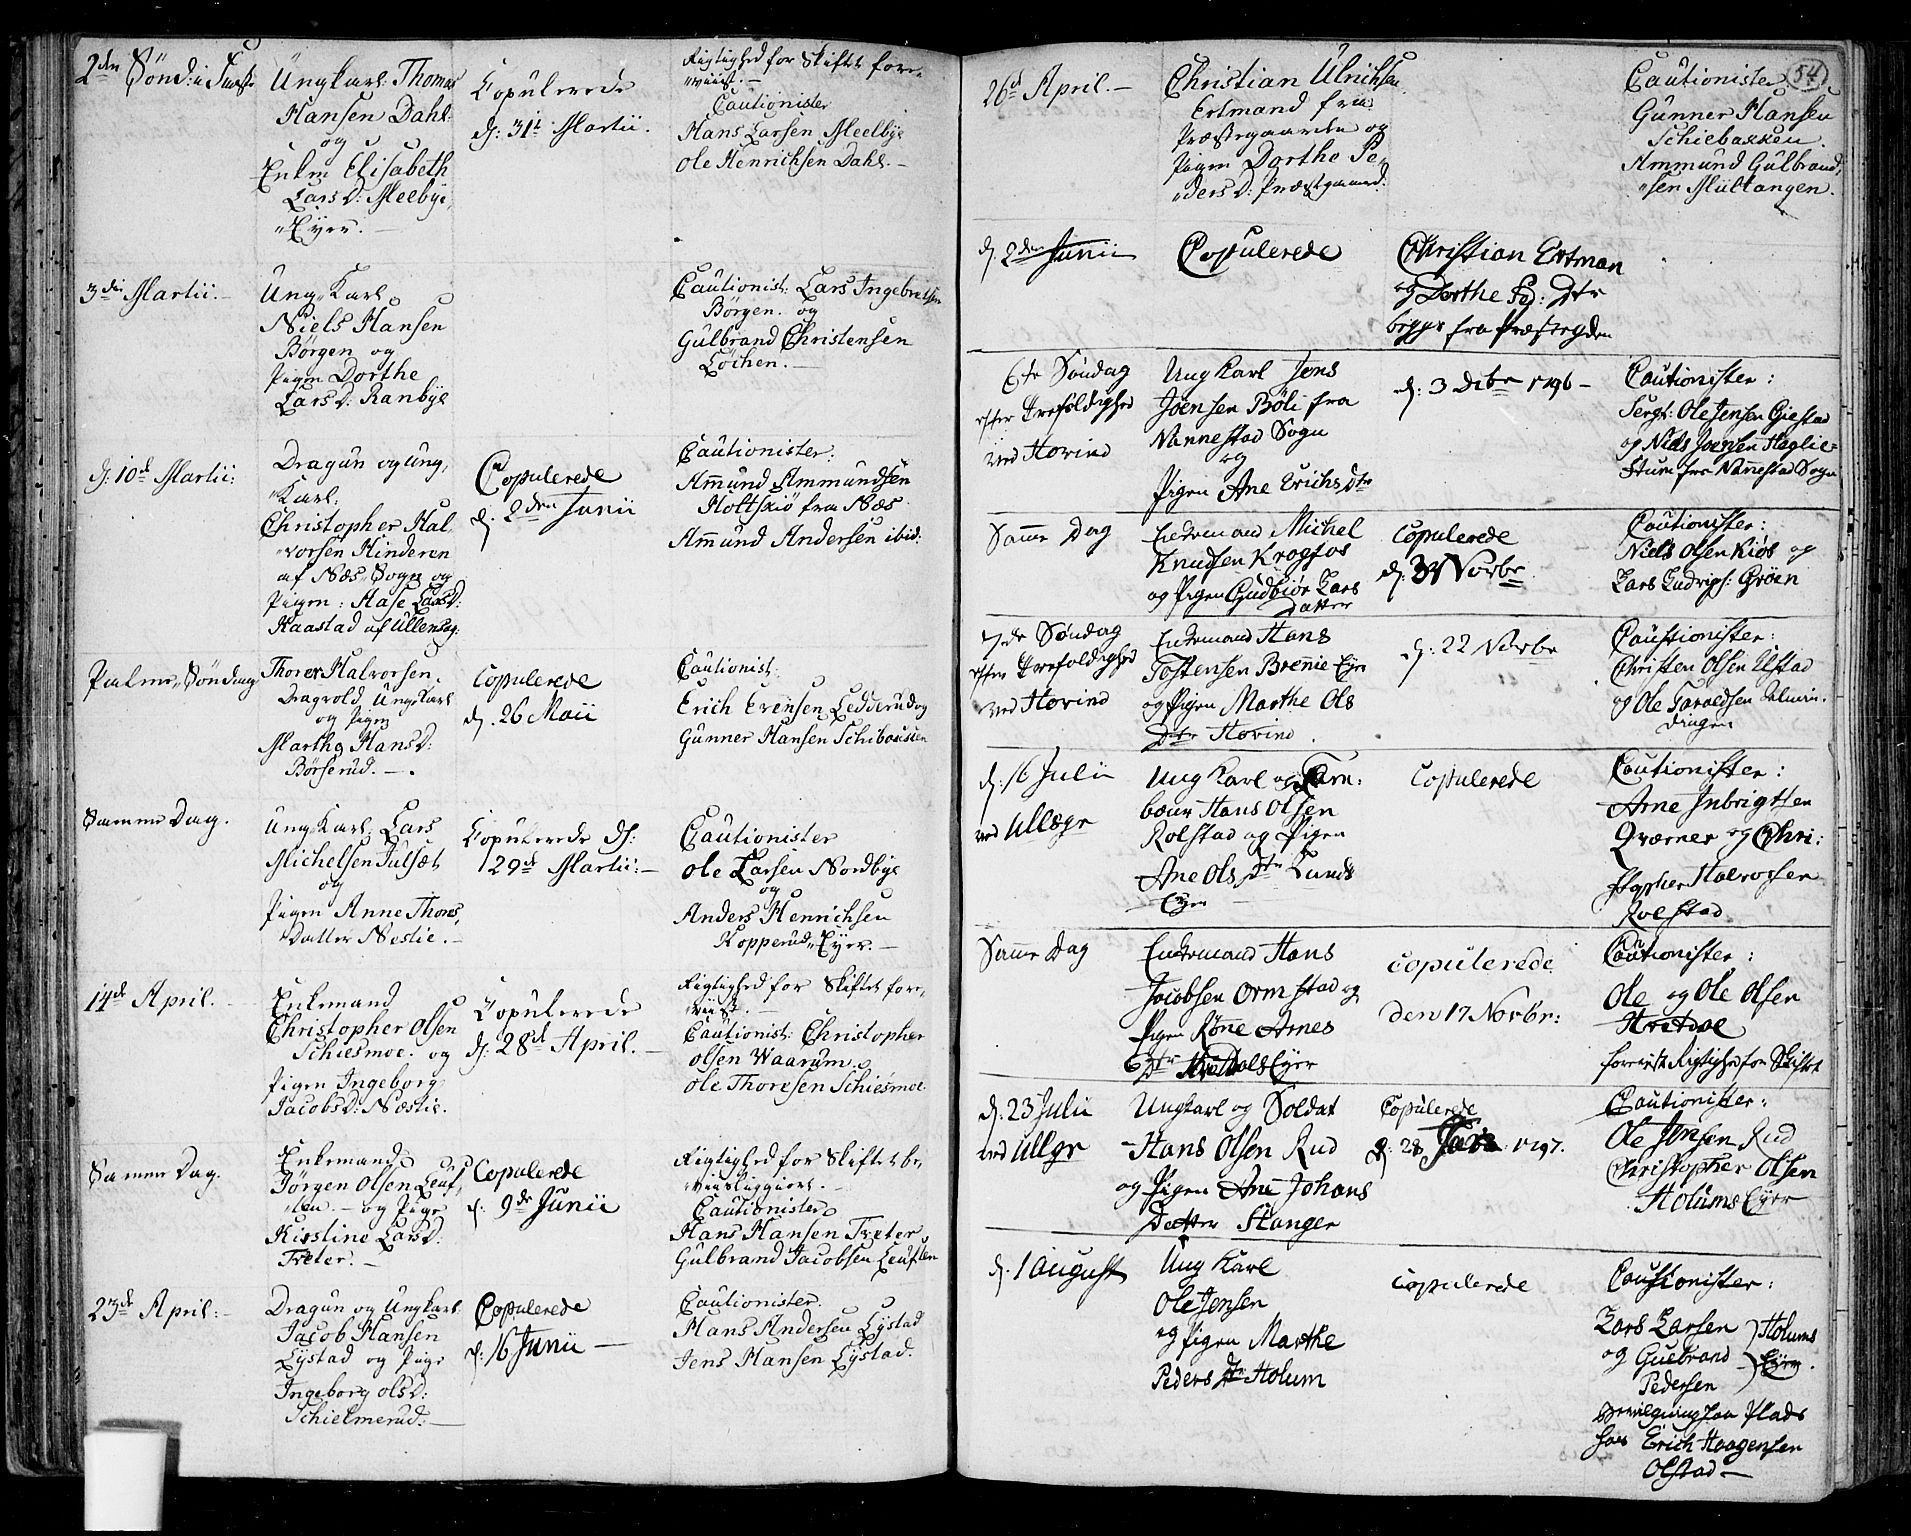 2den Sønd: i Faste
Ungkarl Thomas
Hansen Dahl:
og
Enken Elisabeth
Lars D: Meelbye
"Eyer. -
Copulerede
d: 31te Martii.
Rigtighed for Skiftet fore-
"viist. -
Cautionister
Hans Larsen Meelbye
Ole Henrichsen Dahl. -
3die Martii. -
Ung-Karl
Niels Hansen
Børgen og
Pigen Dorthe
Lars D: Ranbye
Cautionist: Lars Ingebretsen
Børgen. og
Gulbrand Christensen
Løchen. -
d: 10de Martii:
Dragun og Ung-
"Karl:
Christopher Hal-
"vorsen Hinderen
af Næs Sogn og
Pigen: Aase LarsD:
Kaastad af Ullensag:
Copulerede
d. 2den Junii
Cautionister:
Ammund Ammundsen
Holtskiø fra Næs
Ammund Andersen ibid:
Palme-Søndag
Thorer Halvorsen
Dragvold Ungkarl
og Pigen
Marthe HansD:
Børserud. -
Copulerede
d. 26 Maii
Cautionist:
Erich Evensen Ledderud og
Gunner Hansen Schibaussen
Samme Dag.
Ung-Karl Lars
Michelsen Julsæt
og
Pigen Anne Thores
Datter Nestie. -
Copulerede d:
29de Martii: -
Cautionister
Ole Larsen Nordbye
og
Anders Henrichsen
Kopperud-Eyer. -
14de April. -
Enkemand
Christopher Olsen
Schiesmoe. og
Pigen Ingeborg
JacobsD: Næstie.
Copulerede
d: 28de April. -
Rigtighed for Skiftet fore-
"viist. -
Cautionist: Christopher
Olsen Waarum.
Ole Thoresen Schiesmoe.
Samme Dag.
Enkemand
Jørgen Olsen Leuf-
"sen. - og Pige
Kirstine LarsD:
Tveter. -
Copulerede
d: 9de Junii
Rigtighed for Skiftet be-
Cautionister
Hans Hansen Tveter
Gulbrand Jacobsen Leufsen
23de April: -
Dragun og Ungkarl
Jacob Hansen
Lystad og Pige
Ingeborg OlsD:
Schielmerud. -
Copulerede
d: 16 Junii -
Cautionister.
Hans Andersen Lystad
Jens Hansen Lystad.
54
26de April. -
Christian Ulrichsen
Ertmand fra
Præstegaarden og
Pigen Dorthe Pe-
"ders D: Præstgaard.
Cautionister
Gunner Hansen
Schiebaxxen.
Ammund Gulbrand-
"sen Multangen.
d. 2den Junii
Copulerede
Christian Ertman
og Dorthe Pd: Dtr
begge fra Præstegden
6te Søndag
efter Trefoldighed
ved Hovind
Ung Karl Jens
Joensen Böli fra
Nannestad Sogn
og
Pigen Ane Erichs Dtr
d: 3 Dcbr 1796 -
Cautionister:
Sergt: Ole Jensen Giestad
og Niels Joensen Haglie=
Stuen fra Nanestad Sogn
Samme Dag
Enkemand Michel
Knudsen Krogfos
og Pigen Gudbiør Lars
Datter
Copulerede
d: 3 Novbr
Cautionister:
Niels Olsen Kiøs og
Lars Ludvigs: Grøen
7de Søndag
efter Trefoldighed
ved Hovind
Enkemand Hans
Tostensen Brennie Eyr
og Pigen Marthe Ols
Dtr Hovind.
d: 22 Novbr
Cautionister:
Christen Olsen Elstad
og Ole Taraldsen Almin-
dingen
d: 16 Julii
ved Ullsgr
Ung Karl og Tam-
bour Hans Olsen
Rolstad og Pigen
Ane Ols Dtr Lunds
Eyer
Copulerede
Cautionister:
Arne Inbrigtsen
Qværner og Chri:
stopher Halvorsen
Rolstad
Samme Dag
Enkemand Hans
Jacobsen Ormstad og
Pigen Rønne Arnes
Dtr Hvedals Eyer
copulerede
den 17 Novbr:
Cautionister:
Ole og Ole Olsen
Hvedal
foreviist Rigtighed for Skiftet
d: 23 Julii
ved Ullgr
Ungkarl og Soldat
Hans Olsen Rud
og Pigen Ane Johans
Datter Stanger
Copulerede
d: 28 Janr 1797.
Cautionister:
Ole Jensen Rud
Christopher Olsen
Holums Eyer
d. 1 August
Ung Karl
Ole Jensen
og Pigen Marthe
Peders Dtr Holum
Copulerede
Cautionister:
Lars Larsen
og Gulbrand
Pedersen
Holums
Eyer.
Erich Haagensen
Olstad -